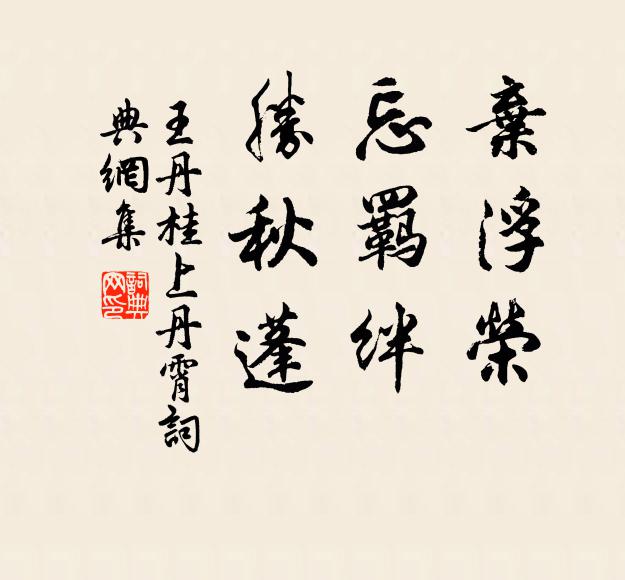 棄浮榮
忘羈絆
勝秋蓬
王丹桂上丹霄詞
典網集
詞典
网印